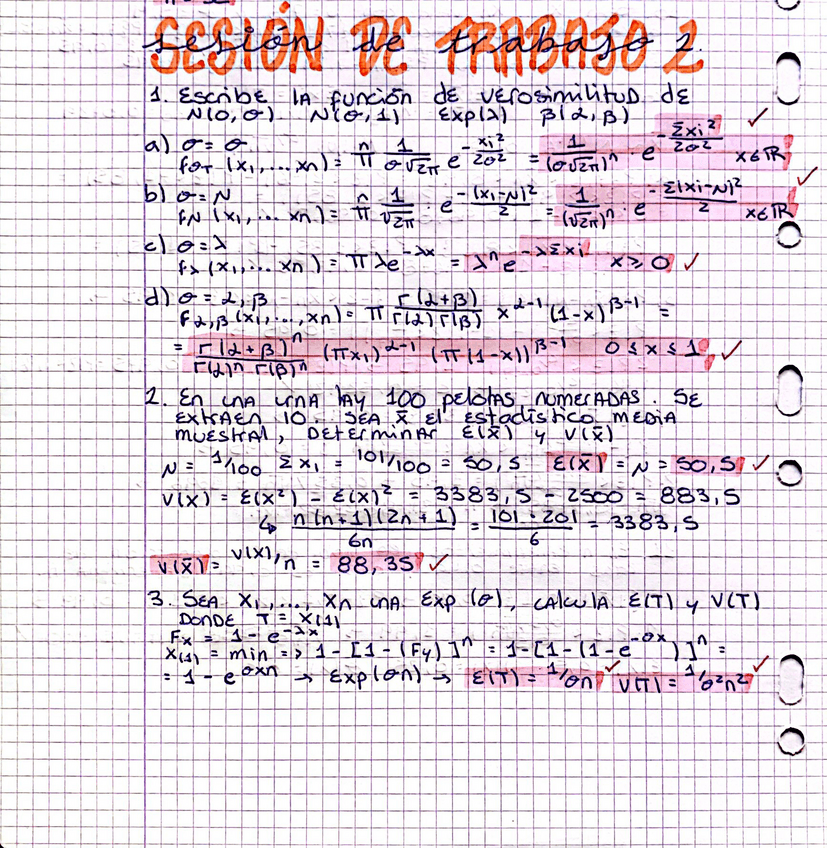 SESIÓN DE TRABAJO 2
sesión de trabajo 2.
1. Escribe la función de verosimilitud de
N(0,σ) N(θ,1) Exp(λ) β(α,β) ✓
a) θ = σ
fστ (x1,... xn) = π^n 1/(σ√2π) e^(-xi²/2σ²) = 1/(σ√2π)^n · e^(-Σxi²/2σ²) x∈ℝ
b) θ = μ
fμ (x1,... xn) = π^n 1/√2π · e^(-(xi-μ)²/2) = 1/(√2π)^n · e^(-Σ(xi-μ)²/2) x∈ℝ ✓
c) θ = λ
fλ (x1,... xn) = π λe^(-λx) = λ^n e^(-λΣxi) x ≥ 0 ✓
d) θ = α, β
fα,β (x1,...,xn) = π Γ(α+β)/(Γ(α)Γ(β)) x^(α-1) (1-x)^(β-1) =
= Γ(α+β)^n/(Γ(α)^n Γ(β)^n) (πxi)^(α-1) (π(1-x))^(β-1) 0 ≤ x ≤ 1 ✓
2. En una urna hay 100 pelotas numeradas. Se
extraen 10. Sea x̄ el estadístico media
muestral, determinar E(x̄) y V(x̄)
μ = 1/100 Σxi = 101/100 = 50,5 E(x̄) = μ = 50,5 ✓
V(x) = E(x²) - E(x)² = 3383,5 - 2500 = 883,5
↳ n(n+1)(2n+1)/6n = 101·201/6 = 3383,5
V(x̄) = V(x)/n = 88,35 ✓
3. Sea x1,..., xn una Exp(θ), calcula E(T) y V(T)
donde T = x(1)
Fx = 1 - e^(-λx)
x(1) = min => 1-[1-(Fy)]^n = 1-[1-(1-e^(-θx))]^n =
= 1 - e^(θxn) → Exp(θn) → E(T) = 1/θn ✓ V(T) = 1/θ²n² ✓